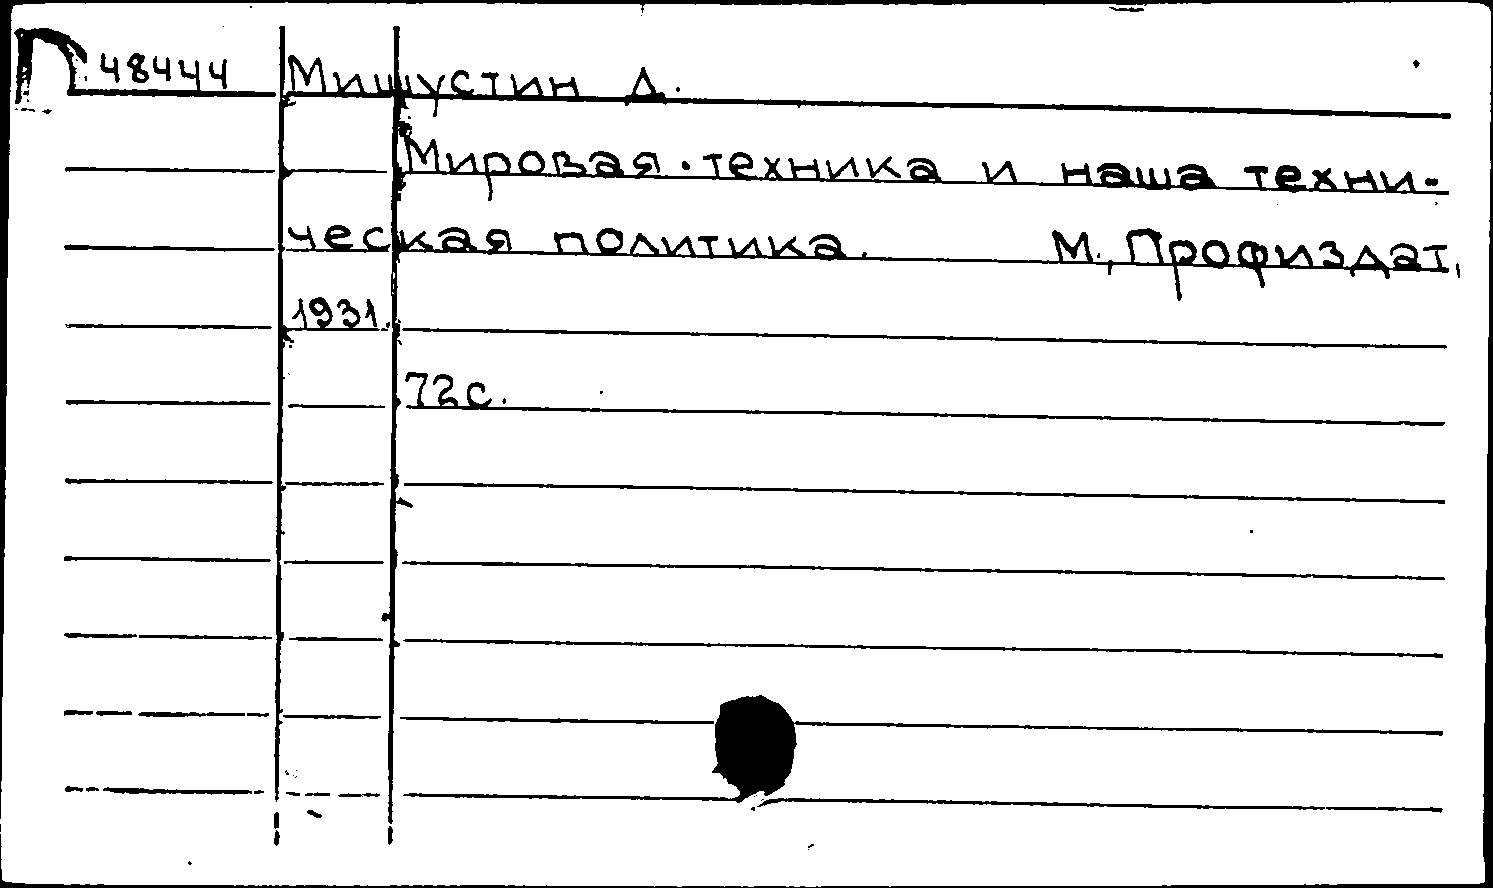 П 48444 Мишустин Д.
Мировая техника и наша техни-
ческая политика. М., Профиздат,
1931.
72с.